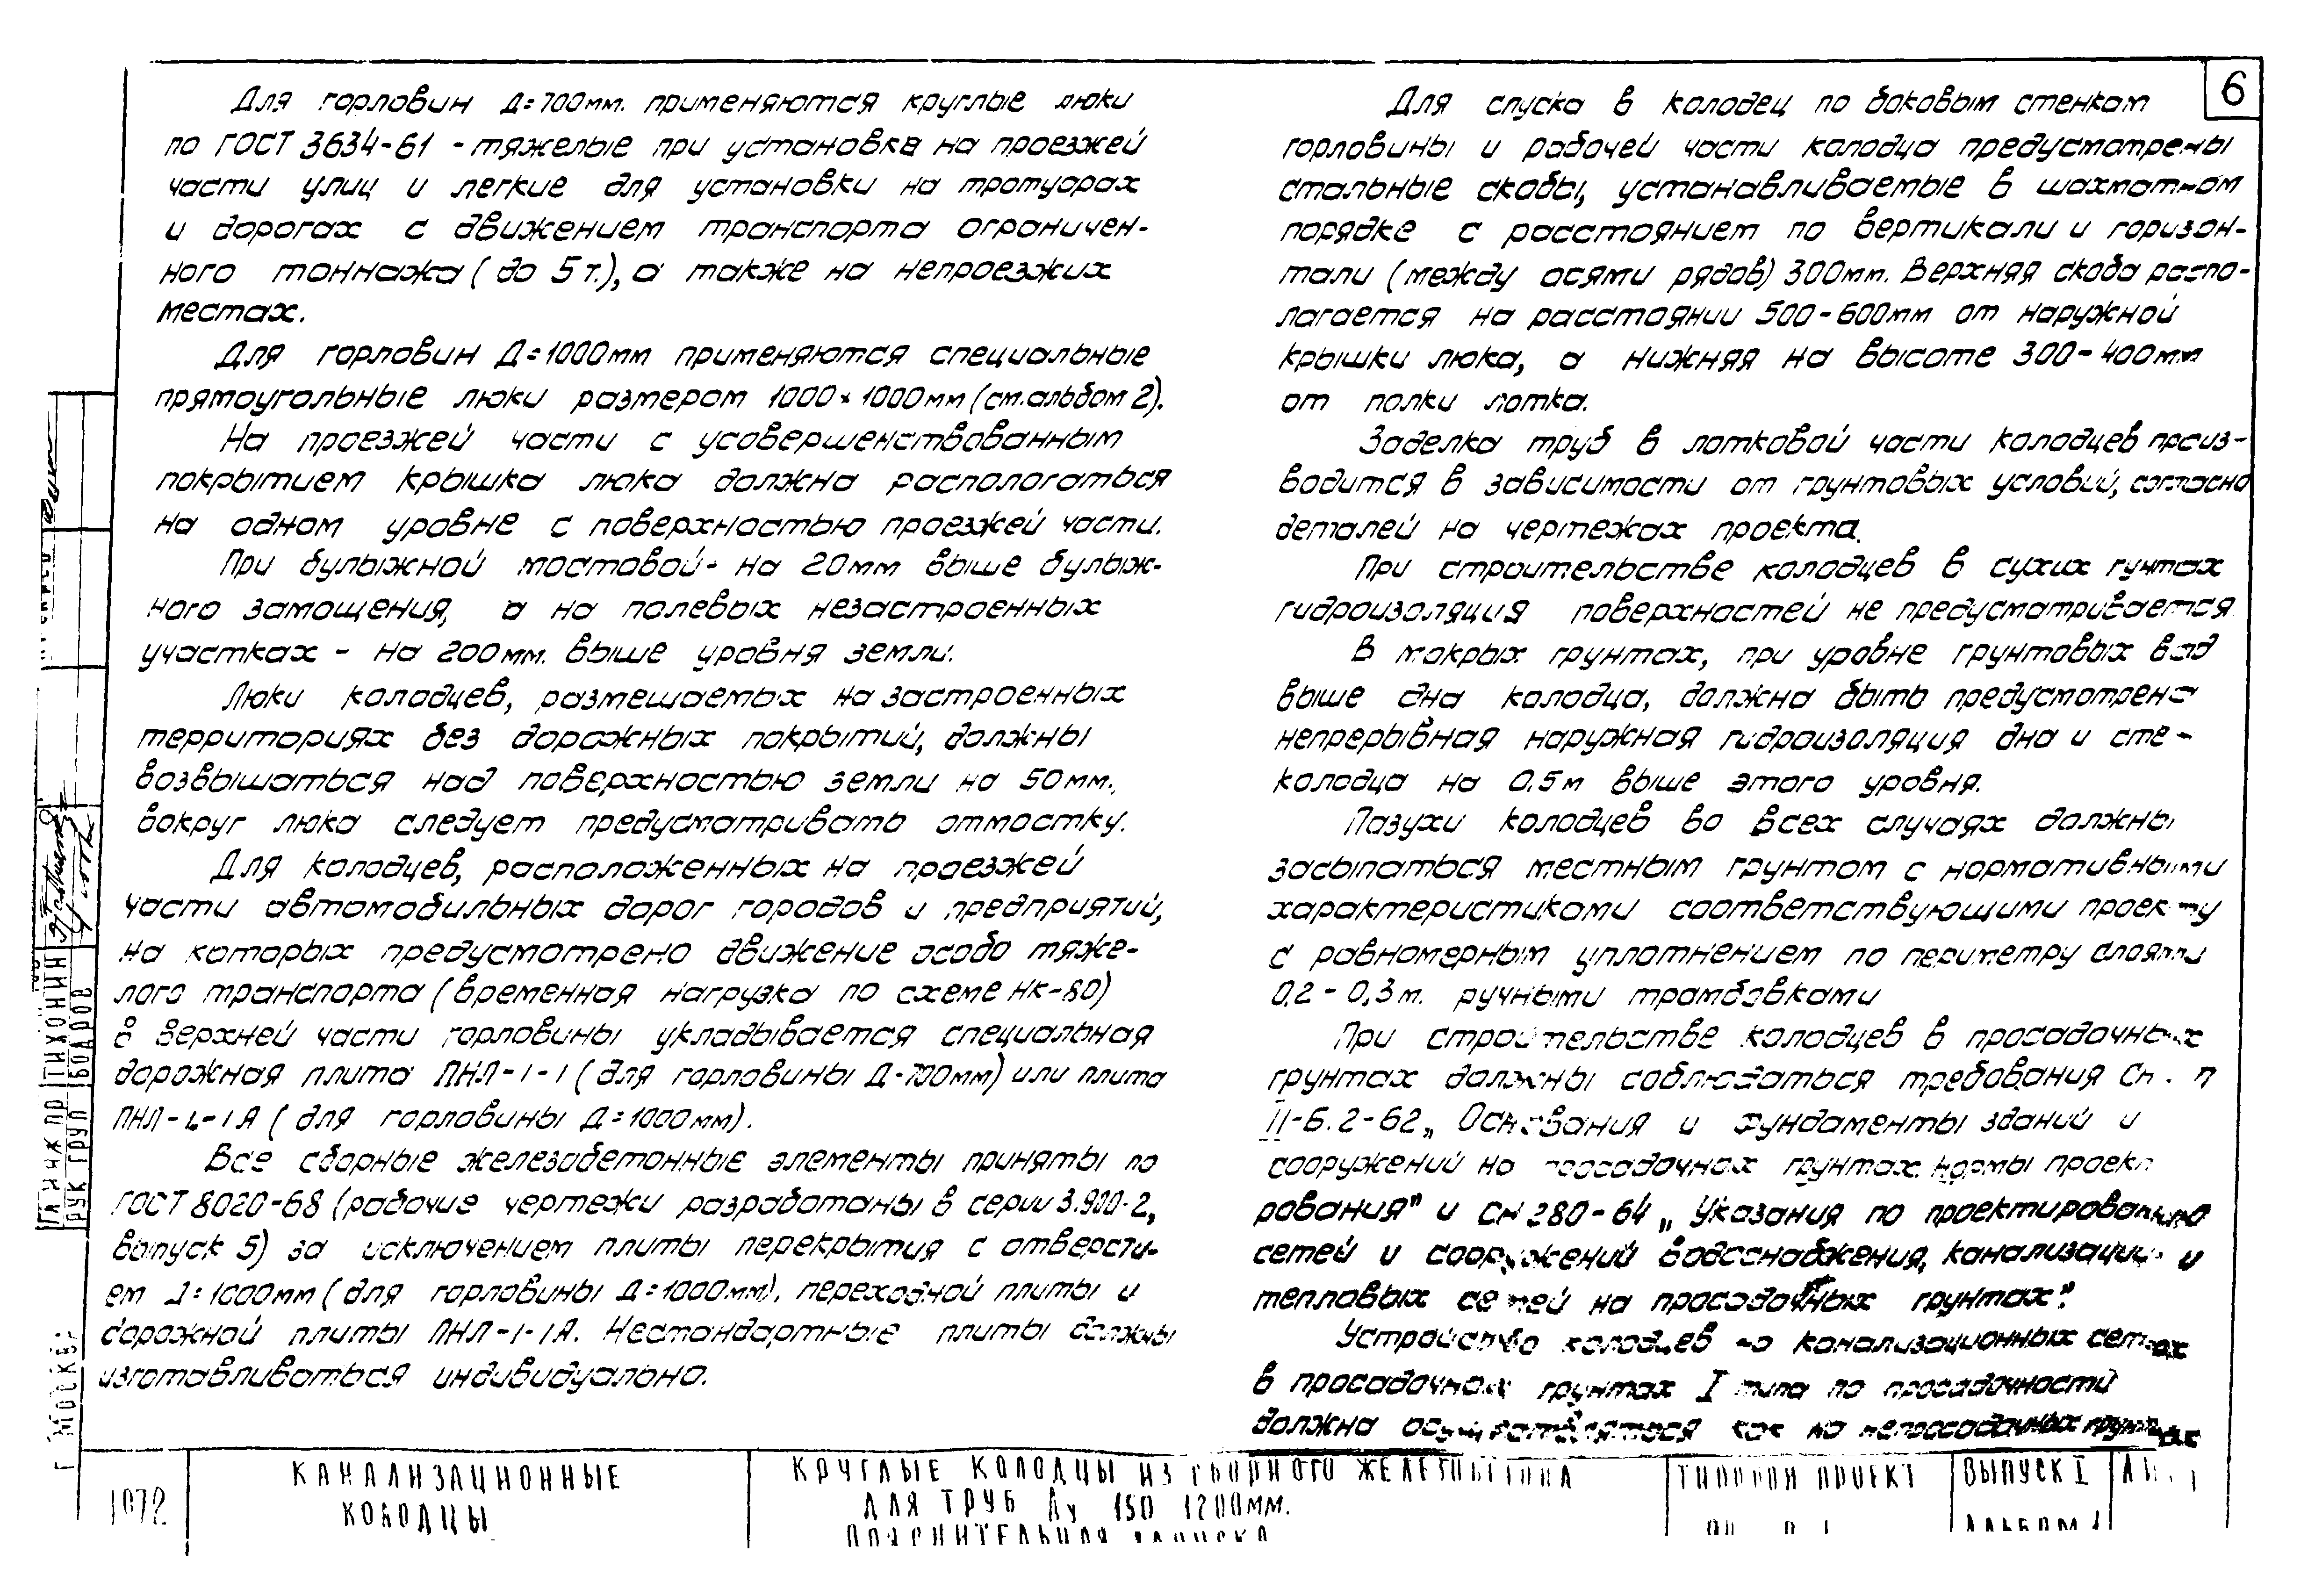 6
Для горловин Д=700мм. применяются круглые люки
по ГОСТ 3634-61 - тяжелые при установке на проезжей
части улиц и легкие для установки на тротуарах
и дорогах с движением транспорта ограничен-
ного тоннажа (до 5т.), а также на непроезжих
местах.
Для горловин Д=1000мм применяются специальные
прямоугольные люки размером 1000×1000мм (см.альбом 2).
На проезжей части с усовершенствованным
покрытием крышка люка должна распологаться
на одном уровне с поверхностью проезжей части.
При булыжной мостовой - на 20мм выше булыж-
ного замощения, а на полевых незастроенных
участках - на 200мм. выше уровня земли.
Люки колодцев, размещаемых на застроенных
территориях без дорожных покрытий, должны
возвышаться над поверхностью земли на 50мм.,
вокруг люка следует предусматривать отмостку.
Для колодцев, расположенных на проезжей
части автомобильных дорог городов и предприятий,
на которых предусмотрено движение особо тяже-
лого транспорта (временная нагрузка по схеме НК-80)
в верхней части горловины укладывается специальная
дорожная плита ПНЛ-1-1 (для горловины Д=700мм) или плита
ПНЛ-1-1А (для горловины Д=1000мм).
Все сборные железобетонные элементы приняты по
ГОСТ 8020-68 (рабочие чертежи разработаны в серии 3.900-2,
выпуск 5) за исключением плиты перекрытия с отверсти-
ем Д=1000мм (для горловины Д=1000мм), переходной плиты и
дорожной плиты ПНЛ-1-1А. Нестандартные плиты должны
изготавливаться индивидуально.
Для спуска в колодец по боковым стенкам
горловины и рабочей части колодца предусмотрены
стальные скобы, устанавливаемые в шахматном
порядке с расстоянием по вертикали и горизон-
тали (между осями рядов) 300мм. Верхняя скоба распо-
лагается на расстоянии 500-600мм от наружной
крышки люка, а нижняя на высоте 300-400мм
от полки лотка.
Заделка труб в лотковой части колодцев произ-
водится в зависимости от грунтовых условий, согласно
деталей на чертежах проекта.
При строительстве колодцев в сухих гунтах
гидроизоляция поверхностей не предусматривается
В мокрых грунтах, при уровне грунтовых вод
выше дна колодца, должна быть предусмотрена
непрерывная наружная гидроизоляция дна и сте-
колодца на 0,5м выше этого уровня.
Пазухи колодцев во всех случаях должны
засыпаться местным грунтом с нормативными
характеристиками соответствующими проекту
с равномерным уплотнением по периметру слоями
0,2-0,3м. ручными трамбовками
При строительстве колодцев в просадочных
грунтах должны соблюдаться требования
II-Б.2-62 „Основания и фундаменты зданий и
сооружений на просадочных грунтах. Нормы проект
рования" и СН 280-64 „Указания по проектированию
сетей и сооружений водоснабжения, канализации и
тепловых сетей на просадочных грунтах".
Устройство колодцев на канализационных сетях
в просадочных грунтах I типа по просадочности
должна осуществляться как на непросадочных грунтах
Г. МОСКВ
ГЛ ИНЖ ПР ТИХОНИН
РУК ГРУП БОДРОВ
1972
КАНАЛИЗАЦИОННЫЕ
КОЛОДЦЫ
КРУГЛЫЕ КОЛОДЦЫ ИЗ СБОРНОГО ЖЕЛЕЗОБЕТОНА
ДЛЯ ТРУБ Ду 150 1200ММ.
ПОЯСНИТЕЛЬНАЯ ЗАПИСКА
ТИПОВОЙ ПРОЕКТ
ВЫПУСК I
АЛЬБОМ 1